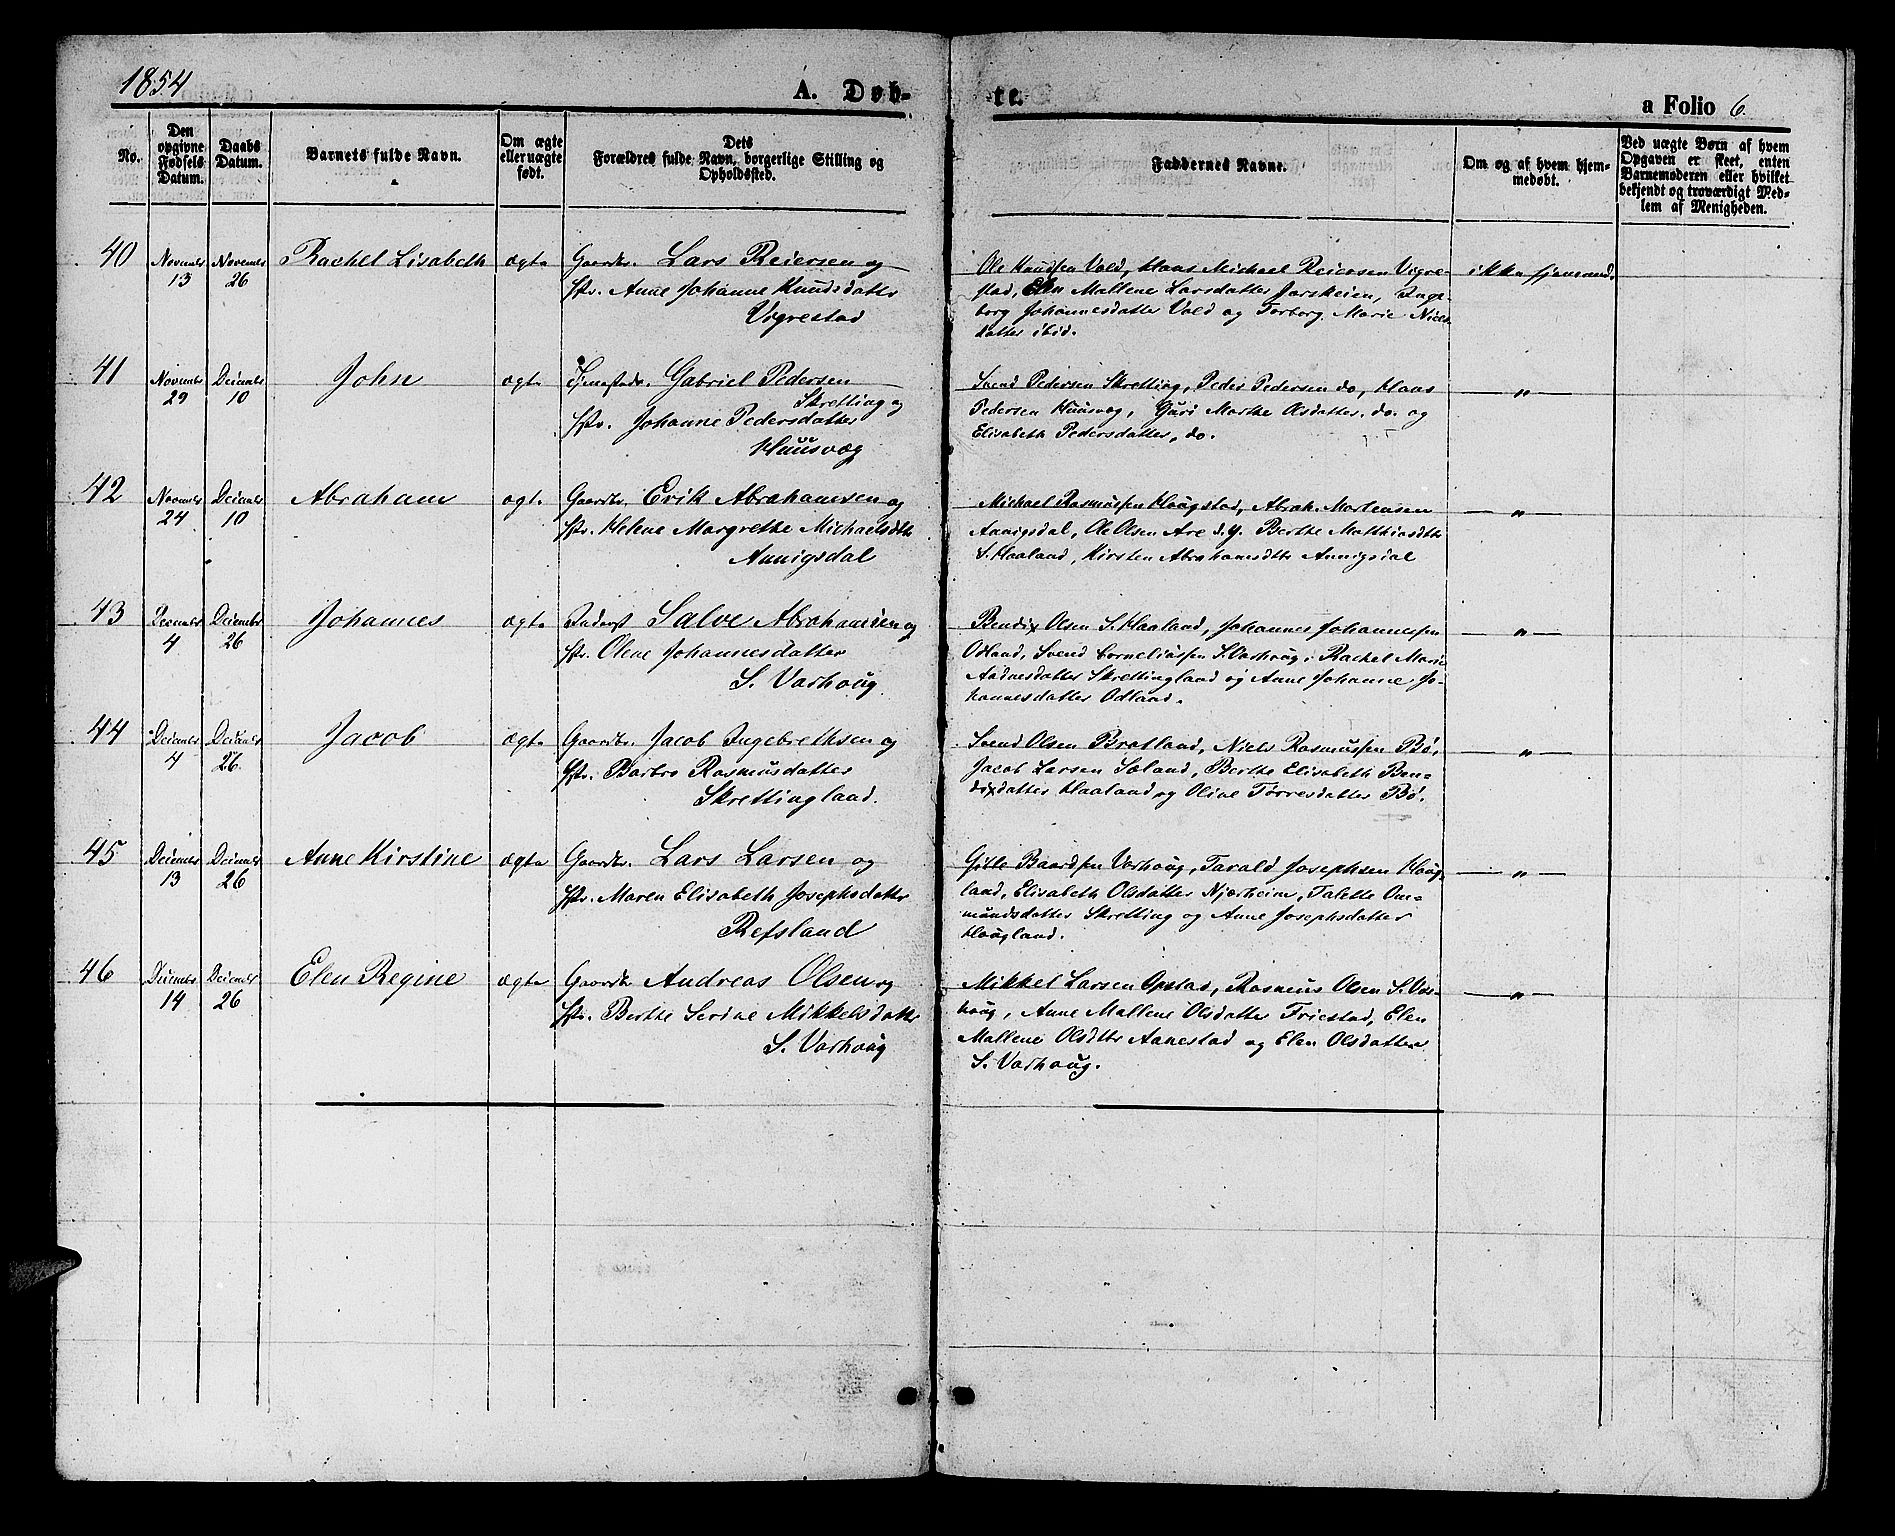 1854
A. Døb-
te.
a Folio 6.
No.
Den opgivne Fødsels Datum.
Daabs Datum.
Barnets fulde Navn.
Om ægte eller uægte født.
Dets Forældres fulde Navn, borgerlige Stilling og Opholdssted.
Faddernes Navne.
Om og af hvem hjemmedøbt.
Ved uægte Børn af hvem Opgaven er skeet, enten Barnemoderen eller hvilket bekjendt og troværdigt Medlem af Menigheden.
40 November 13 November 26 Rachel Lisabeth ægte Gaardbr. Lars Reiersen og
Hstr. Anne Johanne Knudsdatter
Vigrestad
Ole Knudsen Vold, Claas Michael Reiersen Vigre-
stad, Elen Mallene Larsdatter, Inge-
borg Johannesdatter Vold og Torborg Marie Niels-
datter ibid.
ikke hjemmed.
41 November 29 December 10 John ægte Gabriel Pedersen
Skretting og
Hstr. Johanne Pedersdatter
Kuusvæg
Svend Pedersen Skretting, Peder Pedersen do, Claas
Pedersen Kuusvæg, Guri Marthe Olsdatter do. og
Elisabeth Pedersdatter, do.
— „ —
42 November 24 December 10 Abraham ægte Gaardbr. Erik Abrahamsen og
Hstr. Helene Margrethe Michaelsdtr
Aanigsdal
Michael Rasmussen Haugstad, Abrah. Mortensen
Aanigsdal, Ole Olsen Are d.y. Berthe Matthiasdtr
S. Haaland, Kirsten Abrahamsdtr Aanigsdal
— „ —
43 December 4 December 26 Johannes ægte Inderst Salve Abrahamsen og
Hstr. Olene Johannesdatter
S. Varhoug
Bendix Olsen S. Haaland, Johannes Johannessen
Odland, Svend Corneliussen S. Varhoug, Rachel Marie
Aadnesdatter Skrettingland og Anne Johanne Jo-
hannesdatter Odland.
— „ —
44 December 4 December 26. Jacob ægte Gaardbr. Jacob Ingebrethsen og
Hstr. Barbro Rasmusdatter
Skrettingland.
Svend Olsen Bratland, Niels Rasmussen Bø,
Jacob Larsen Soland, Berthe Elisabeth Ben-
dixdatter Haaland og Oline Tørresdatter Bø.
— „ —
45 December 13 December 26 Anne Kirstine ægte Gaardbr. Lars Larsen og
Hstr. Maren Elisabeth Josephsdatter
Refsland
Gitle Baardsen Varhoug, Tarald Josephsen Houg-
land, Elisabeth Olsdatter Njærheim, Talette Om-
mundsdatter Skretting og Anne Josephsdatter
Hougland.
— „ —
46 December 14 December 26 Elen Regine ægte Gaardbr. Andreas Olsen og
Hstr. Berthe Serine Mikkelsdatter
S. Varhoug
Mikkel Larsen Opstad, Rasmus Olsen S. Var-
houg, Anne Mallene Olsdatter Friestad, Elen
Mallene Olsdtr Aanestad og Elen Olsdatter
S. Varhoug.
— „ —